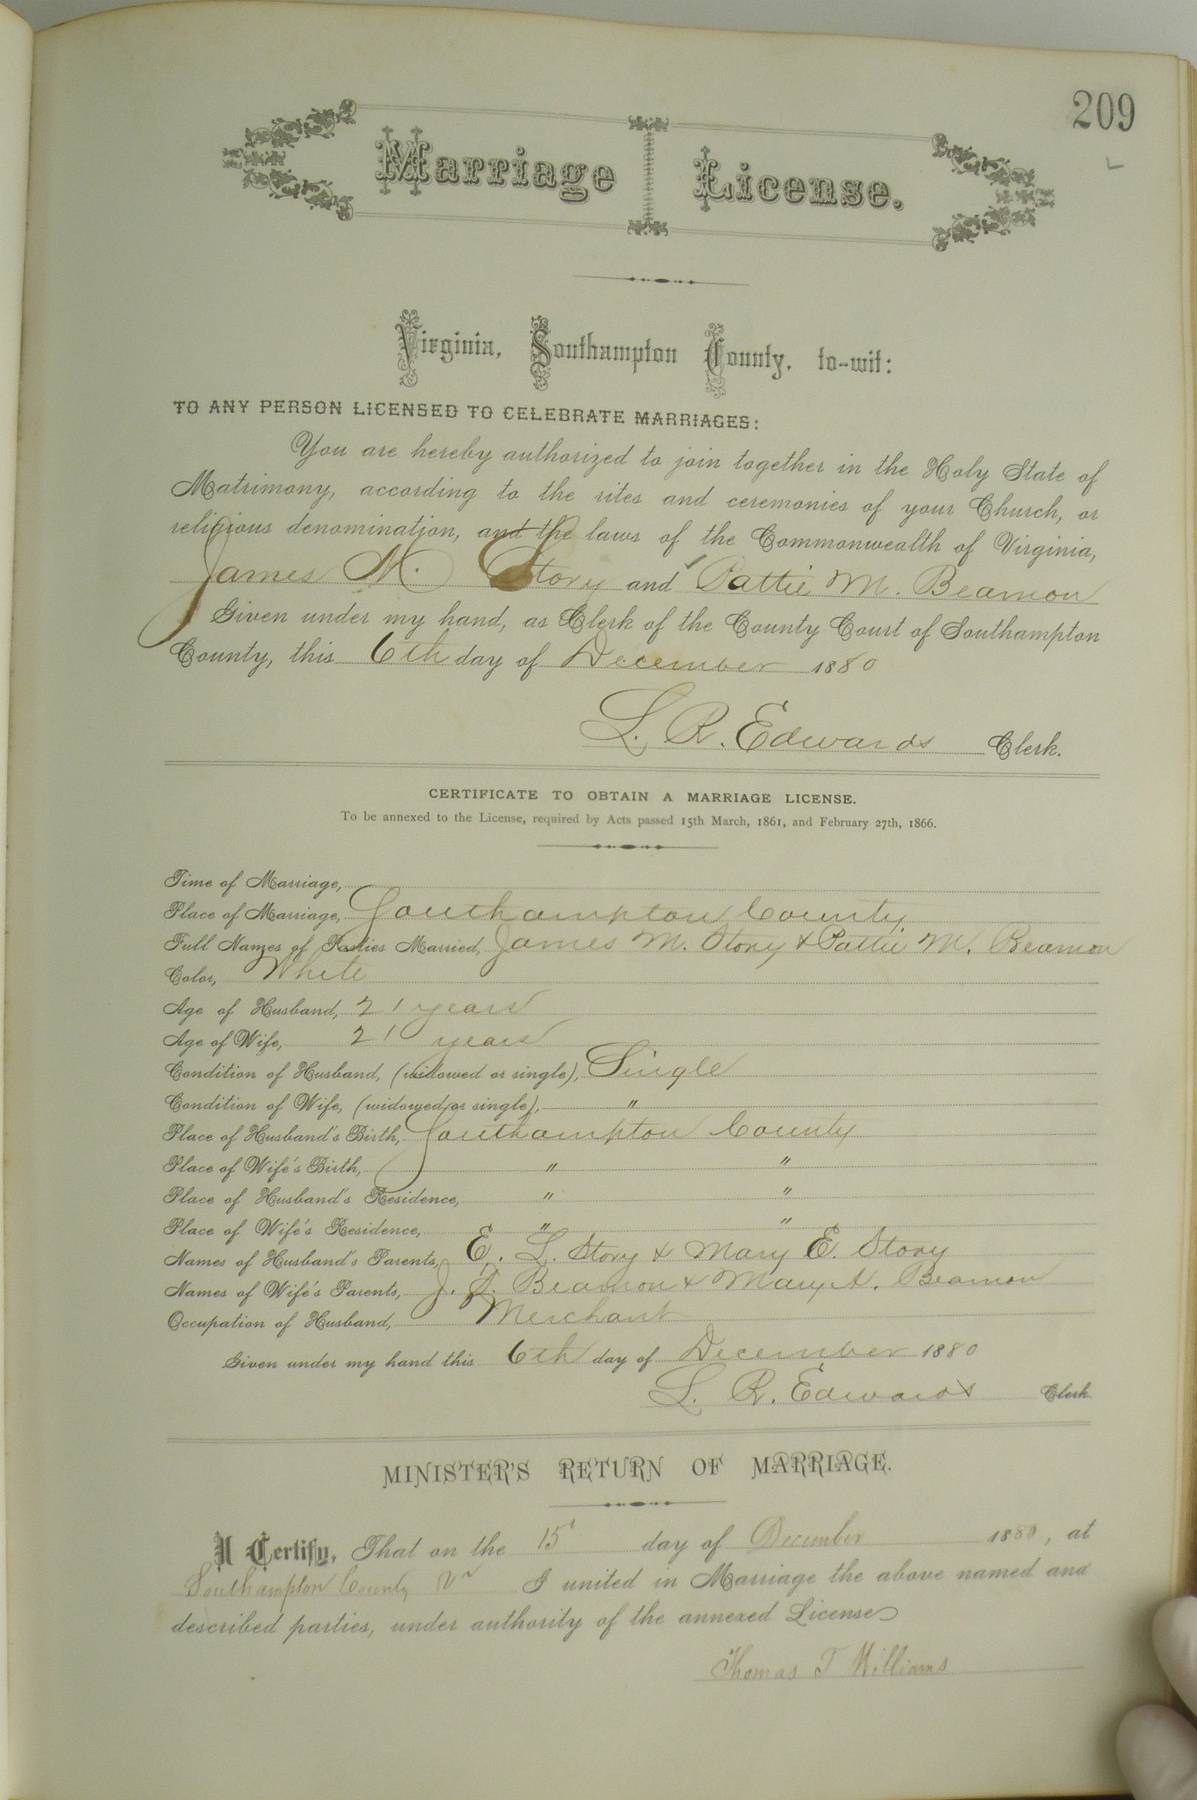 209
Marriage License.
Virginia, Southampton County, to-wit:
TO ANY PERSON LICENSED TO CELEBRATE MARRIAGES:
You are hereby authorized to join together in the Holy State of
Matrimony, according to the rites and ceremonies of your Church, or
religious denomination, and the laws of the Commonwealth of Virginia,
James M. Story and Pattie M. Beamon
Given under my hand, as Clerk of the County Court of Southampton
County, this 6th day of December 1880
L. R. Edwards Clerk.
CERTIFICATE TO OBTAIN A MARRIAGE LICENSE.
To be annexed to the License, required by Acts passed 15th March, 1861, and February 27th, 1866.
Time of Marriage,
Place of Marriage, Southampton County
Full Names of Parties Married, James M. Story & Pattie M. Beamon
Color, White
Age of Husband, 21 years
Age of Wife, 21 years
Condition of Husband, (widowed or single), Single
Condition of Wife, (widowed or single), "
Place of Husband's Birth, Southampton County
Place of Wife's Birth, " "
Place of Husband's Residence, " "
Place of Wife's Residence, " "
Names of Husband's Parents, E. L. Story & Mary E. Story
Names of Wife's Parents, J. Beamon & Mary A. Beamon
Occupation of Husband, Merchant
Given under my hand this 6th day of December 1880
L. R. Edwards Clerk
MINISTER'S RETURN OF MARRIAGE.
I Certify, That on the 15 day of December 1880, at
Southampton County Va I united in Marriage the above named and
described parties, under authority of the annexed License
Thomas T Williams